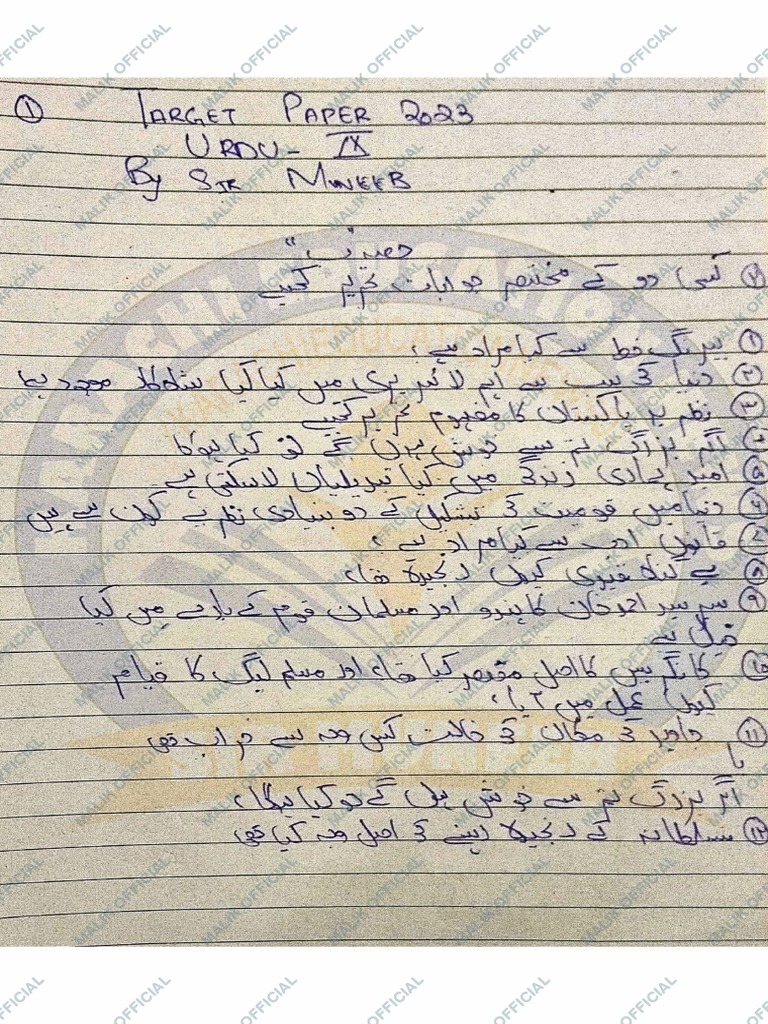 ①
TARGET PAPER 2023
URDU - IX
By SIR MUNEEB
حصہ "ب"
کسی دو کے مختصر جوابات تحریر کیجیے
① بیرنگ خط سے کیا مراد ہے؟
② دنیا کی سب سے اہم لائبریری میں کیا کیا شاہکار موجود ہے
③ نظم پر پاکستان کا مفہوم تحریر کیجیے
④ اگر بزرگ تم سے خوش ہوں گے تو کیا ہوگا
⑤ امید ہماری زندگی میں کیا تبدیلیاں لاسکتی ہے
⑥ دنیا میں قومیت کی تشکیل کے دو بنیادی نظریے کون سے ہیں
⑦ قانون ادب سے کیا مراد ہے؟
⑧ بے گناہ قیدی کیوں رنجیدہ تھا؟
⑨ سر سید احمد خان کا ہندو اور مسلمان قوم کے بارے میں کیا
خیال ہے
⑩ کانگریس کا اصل مقصد کیا تھا؟ اور مسلم لیگ کا قیام
کیوں عمل میں آیا؟
⑪ جاوید کی مکان کی حالت کس وجہ سے خراب تھی
یا
اگر بزرگ تم سے خوش ہوں گے تو کیا ہوگا؟
⑫ سلطانہ کے رنجیدہ رہنے کی اصل وجہ کیا تھی
MALIK OFFICIAL